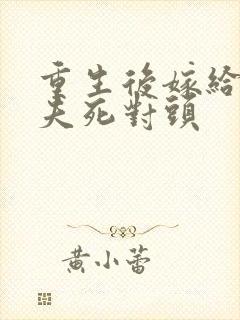 重生後嫁給
夫死對頭
黃小蕾